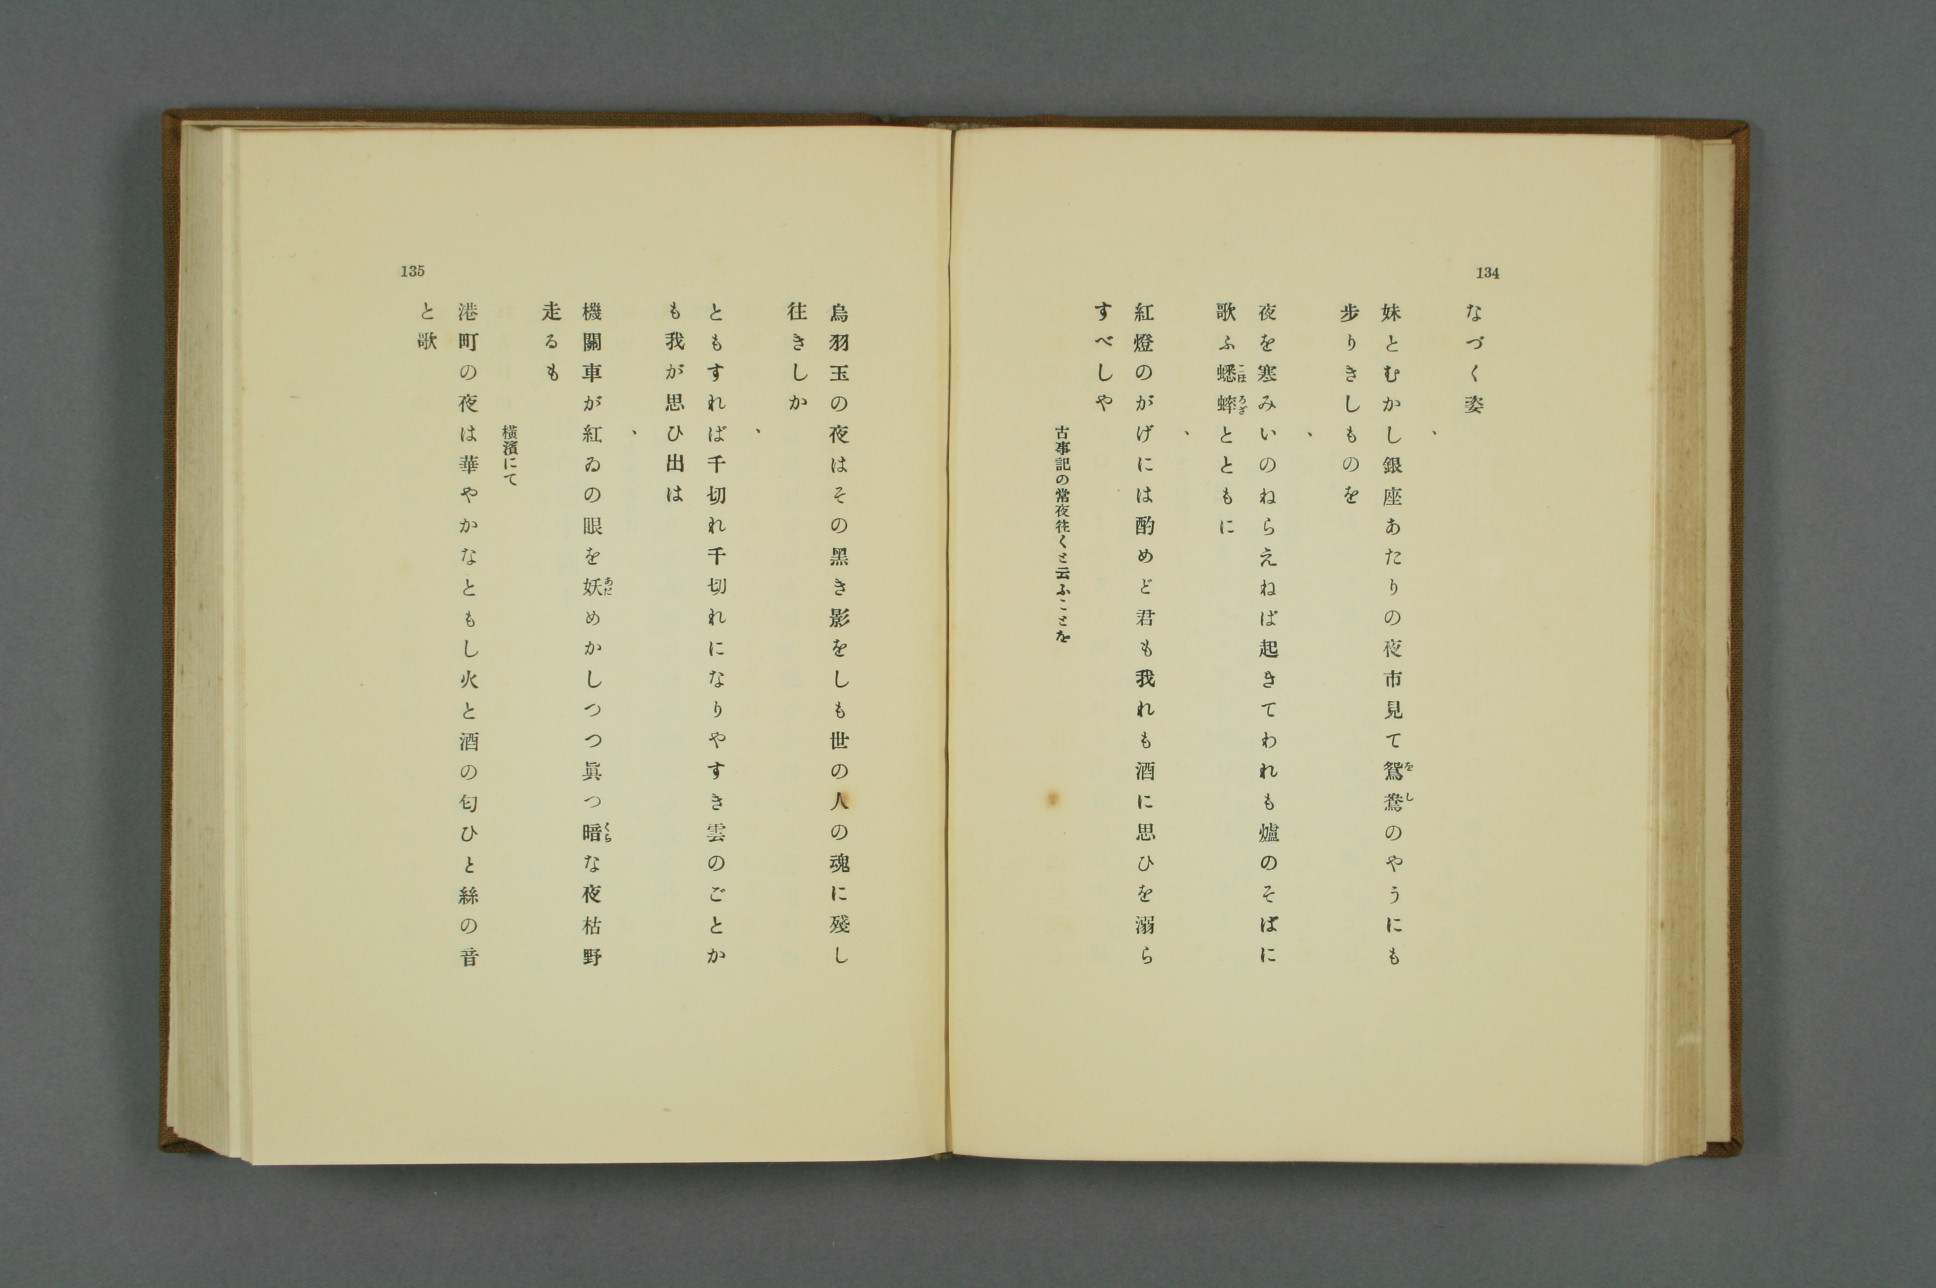 134
なづく姿
、
妹とむかし銀座あたりの夜市見て鴛鴦のやうにも
歩りきしものを
、
夜を寒みいのねらえねば起きてわれも爐のそばに
歌ふ蟋蟀とともに
、
紅燈のがげには酌めど君も我れも酒に思ひを溺ら
すべしや
古事記の常夜往くと云ふことを
烏羽玉の夜はその黑き影をしも世の人の魂に殘し
往きしか
、
ともすれば千切れ千切れになりやすき雲のごとか
も我が思ひ出は
、
機關車が紅ゐの眼を妖めかしつつ眞つ暗な夜枯野
走るも
橫濱にて
港町の夜は華やかなともし火と酒の匂ひと絲の音
と歌
135